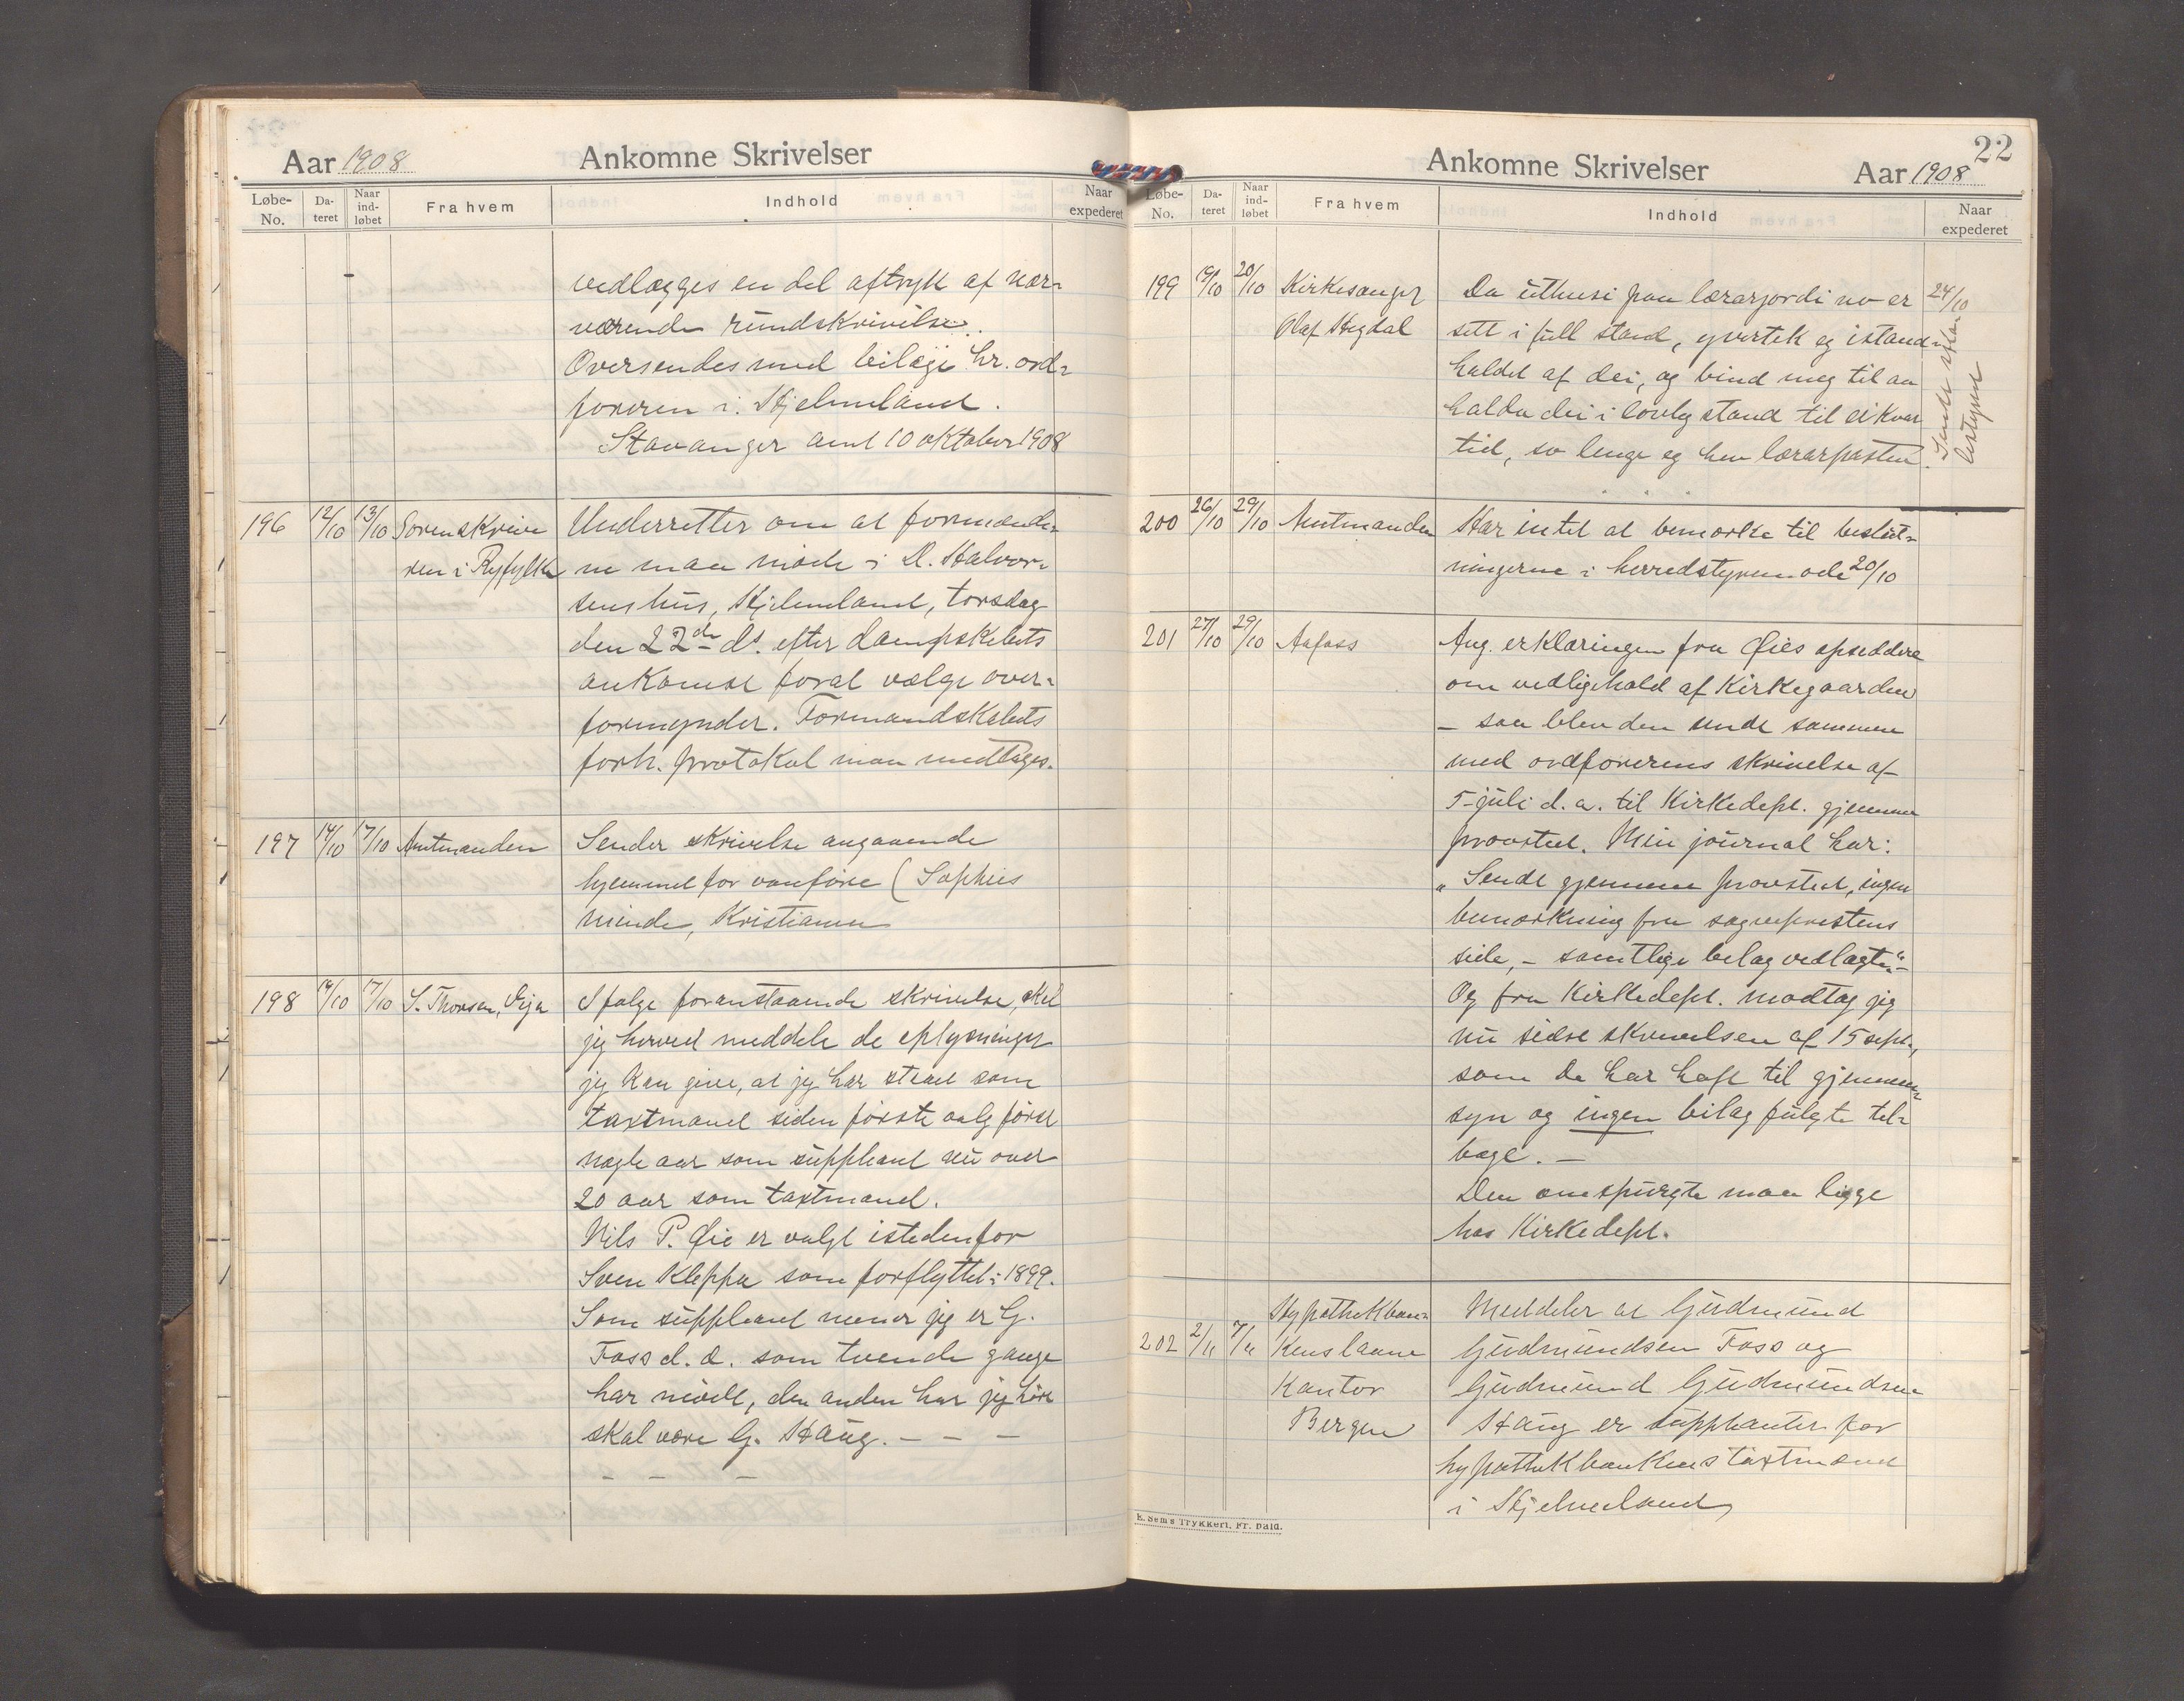 Aar 1908
Ankomne Skrivelser
Løbe-No.
Dateret
Naar indløbet
Fra hvem
Indhold
Naar expederet
vedlægges en del aftryk af nær-
værende rundskrivelse.
Oversendes med bilage hr. ord-
føreren i Hjelmeland.
Stavanger amt 10 oktober 1908
196 12/10 13/10 Sorenskrive Underretter om at formænde-
ren i Ryfylke ne maa møde i R. Halvor-
sens hus, Hjelmeland, torsdag
den 22de ds. efter dampskibets
ankomst forat vælge over-
formynder. Formandskabets
forh. protokol maa medtages.
197 14/10 17/10 Amtmanden Sender skrivelse angaaende
hjemmet for vanføre (Sophies
minde, Kristiania
198 14/10 17/10 S. Thorsen, Vija I følge foranstaaende skrivelse, skal
jeg herved meddele de oplysninger
jeg kan give, at jeg har staaet som
taxtmand siden første valg først
nogle aar som suppleant nu over
20 aar som taxtmand.
Nils P. Øie er valgt istedenfor
Sven Kleppa som forflyttet i 1899.
Som suppleant mener jeg er G.
Foss d. d. som tvende gange
har mødt, den anden har jeg hørt
skal være G. Haug. - - -
- - -
22
Ankomne Skrivelser
Aar 1908
Løbe-No.
Dateret
Naar indløbet
Fra hvem
Indhold
Naar expederet
199 19/10 20/10 Kirkesanger Da uthusi paa lærarjordi no er 24/10
Olaf Hegdal sett i full stand, yvertek eg istand-
haldet af dei, og bind meg til aa
halda dei i lovleg stand til eikvar
tid, so lenge eg hev lærarposten.
Sendt
bestyret
200 26/10 29/10 Amtmanden Har intet at bemærke til beslut-
ningerne i herredstyremøde 20/10
201 27/10 29/10 Aafoss Ang. erklæringen fra Øies opsiddere
om vedligehold af Kirkegaarden
- saa blev den sendt sammen
med ordførerens skrivelse af
5 juli d. a. til Kirkedept. gjennem
provsten. Min journal har:
"Sendt gjennem provsten, ingen
bemærkning fra sogneprestens
side, - samtlige bilag vedlagte"-
Og fra Kirkedept. modtog jeg
nu sidst skrivelsen af 15 sept.,
som De har havt til gjennem-
syn og ingen bilag fulgte til-
bage. -
Den omspurgte maa ligge
hos Kirkedept.
Hypothekban- Meddeler at Gudmund
202 2/11 7/11 kens laane Gudmundsen Foss og
kontor Gudmund Gudmundsen
Bergen Haug er suppleanter for
hypothekbankens taxtmænd
i Hjelmeland,
E. Sem's Trykkeri, Fr. hald.